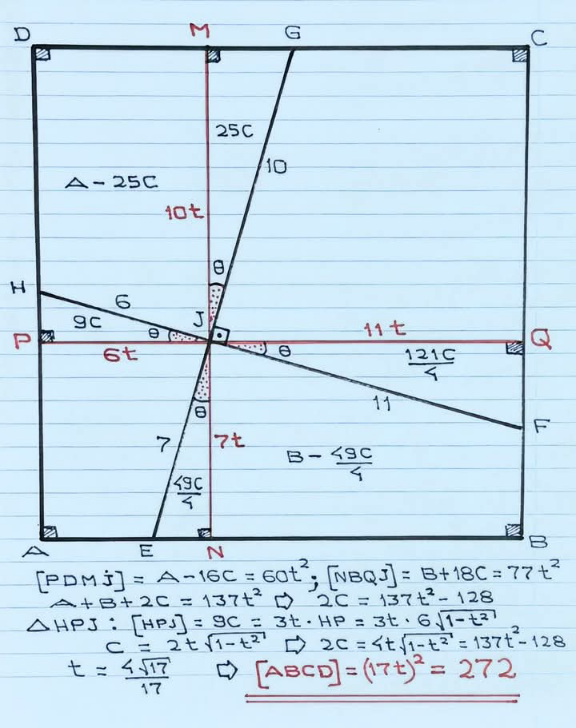 D M G C
25C
10
A - 25C
10t
θ
H
6
9C θ J
P 11t Q
6t θ 121C/4
11
F
θ
7 7t
B - 49C/4
49C/4
A E N B
[PDMJ] = A-16C = 60t²; [NBQJ] = B+18C = 77t²
A+B+2C = 137t² ⇨ 2C = 137t²-128
△HPJ: [HPJ] = 9C = 3t·HP = 3t·6√(1-t²)
C = 2t√(1-t²) ⇨ 2C = 4t√(1-t²) = 137t²-128
t = 4√17/17 ⇨ [ABCD] = (17t)² = 272